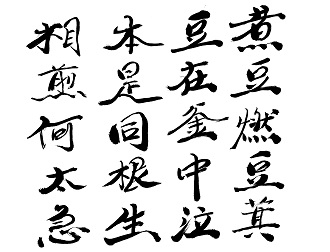 煮豆燃豆萁
豆在釜中泣
本是同根生
相煎何太急